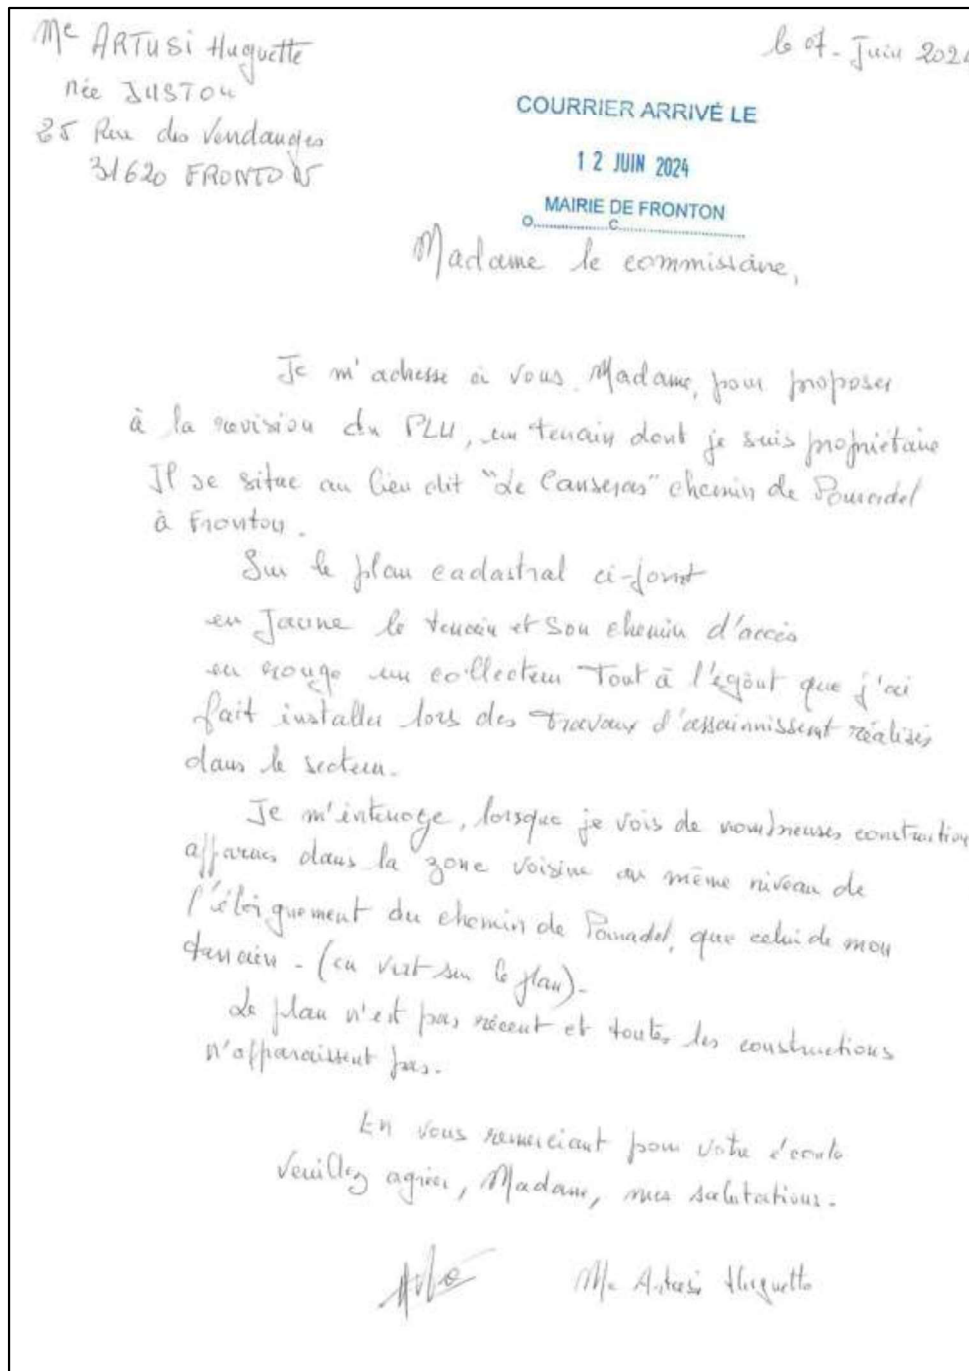 Me ARTUSI Huguette
née JUSTOU
25 Rue des Vendanges
31620 FRONTON
le 07 - Juin 2024
COURRIER ARRIVÉ LE
12 JUIN 2024
MAIRIE DE FRONTON
O C
Madame le commissaire,
Je m'adresse à vous Madame, pour proposer
à la revision du PLU, un terrain dont je suis propriétaire
Il se situe au lieu dit "Le Canseras" chemin de Pouradel
à Fronton.
Sur le plan cadastral ci-joint
en Jaune le terrain et son chemin d'accès
en rouge un collecteur Tout à l'égôut que j'ai
fait installer lors des travaux d'assainnissent réalisés
dans le secteur.
Je m'interroge, lorsque je vois de nombreuses construction
apparues dans la zone voisine au même niveau de
l'éloignement du chemin de Pouradel, que celui de mon
terrain - (en vert sur le plan).
Le plan n'est pas récent et toutes les constructions
n'apparaissent pas.
En vous remerciant pour votre écoute
Veuillez agréer, Madame, mes salutations.
Me Artusi Huguette